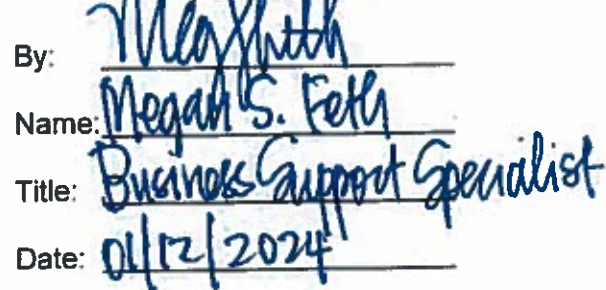 By:
Name: Megan S. Feth
Title: Business Support Specialist
Date: 01/12/2024